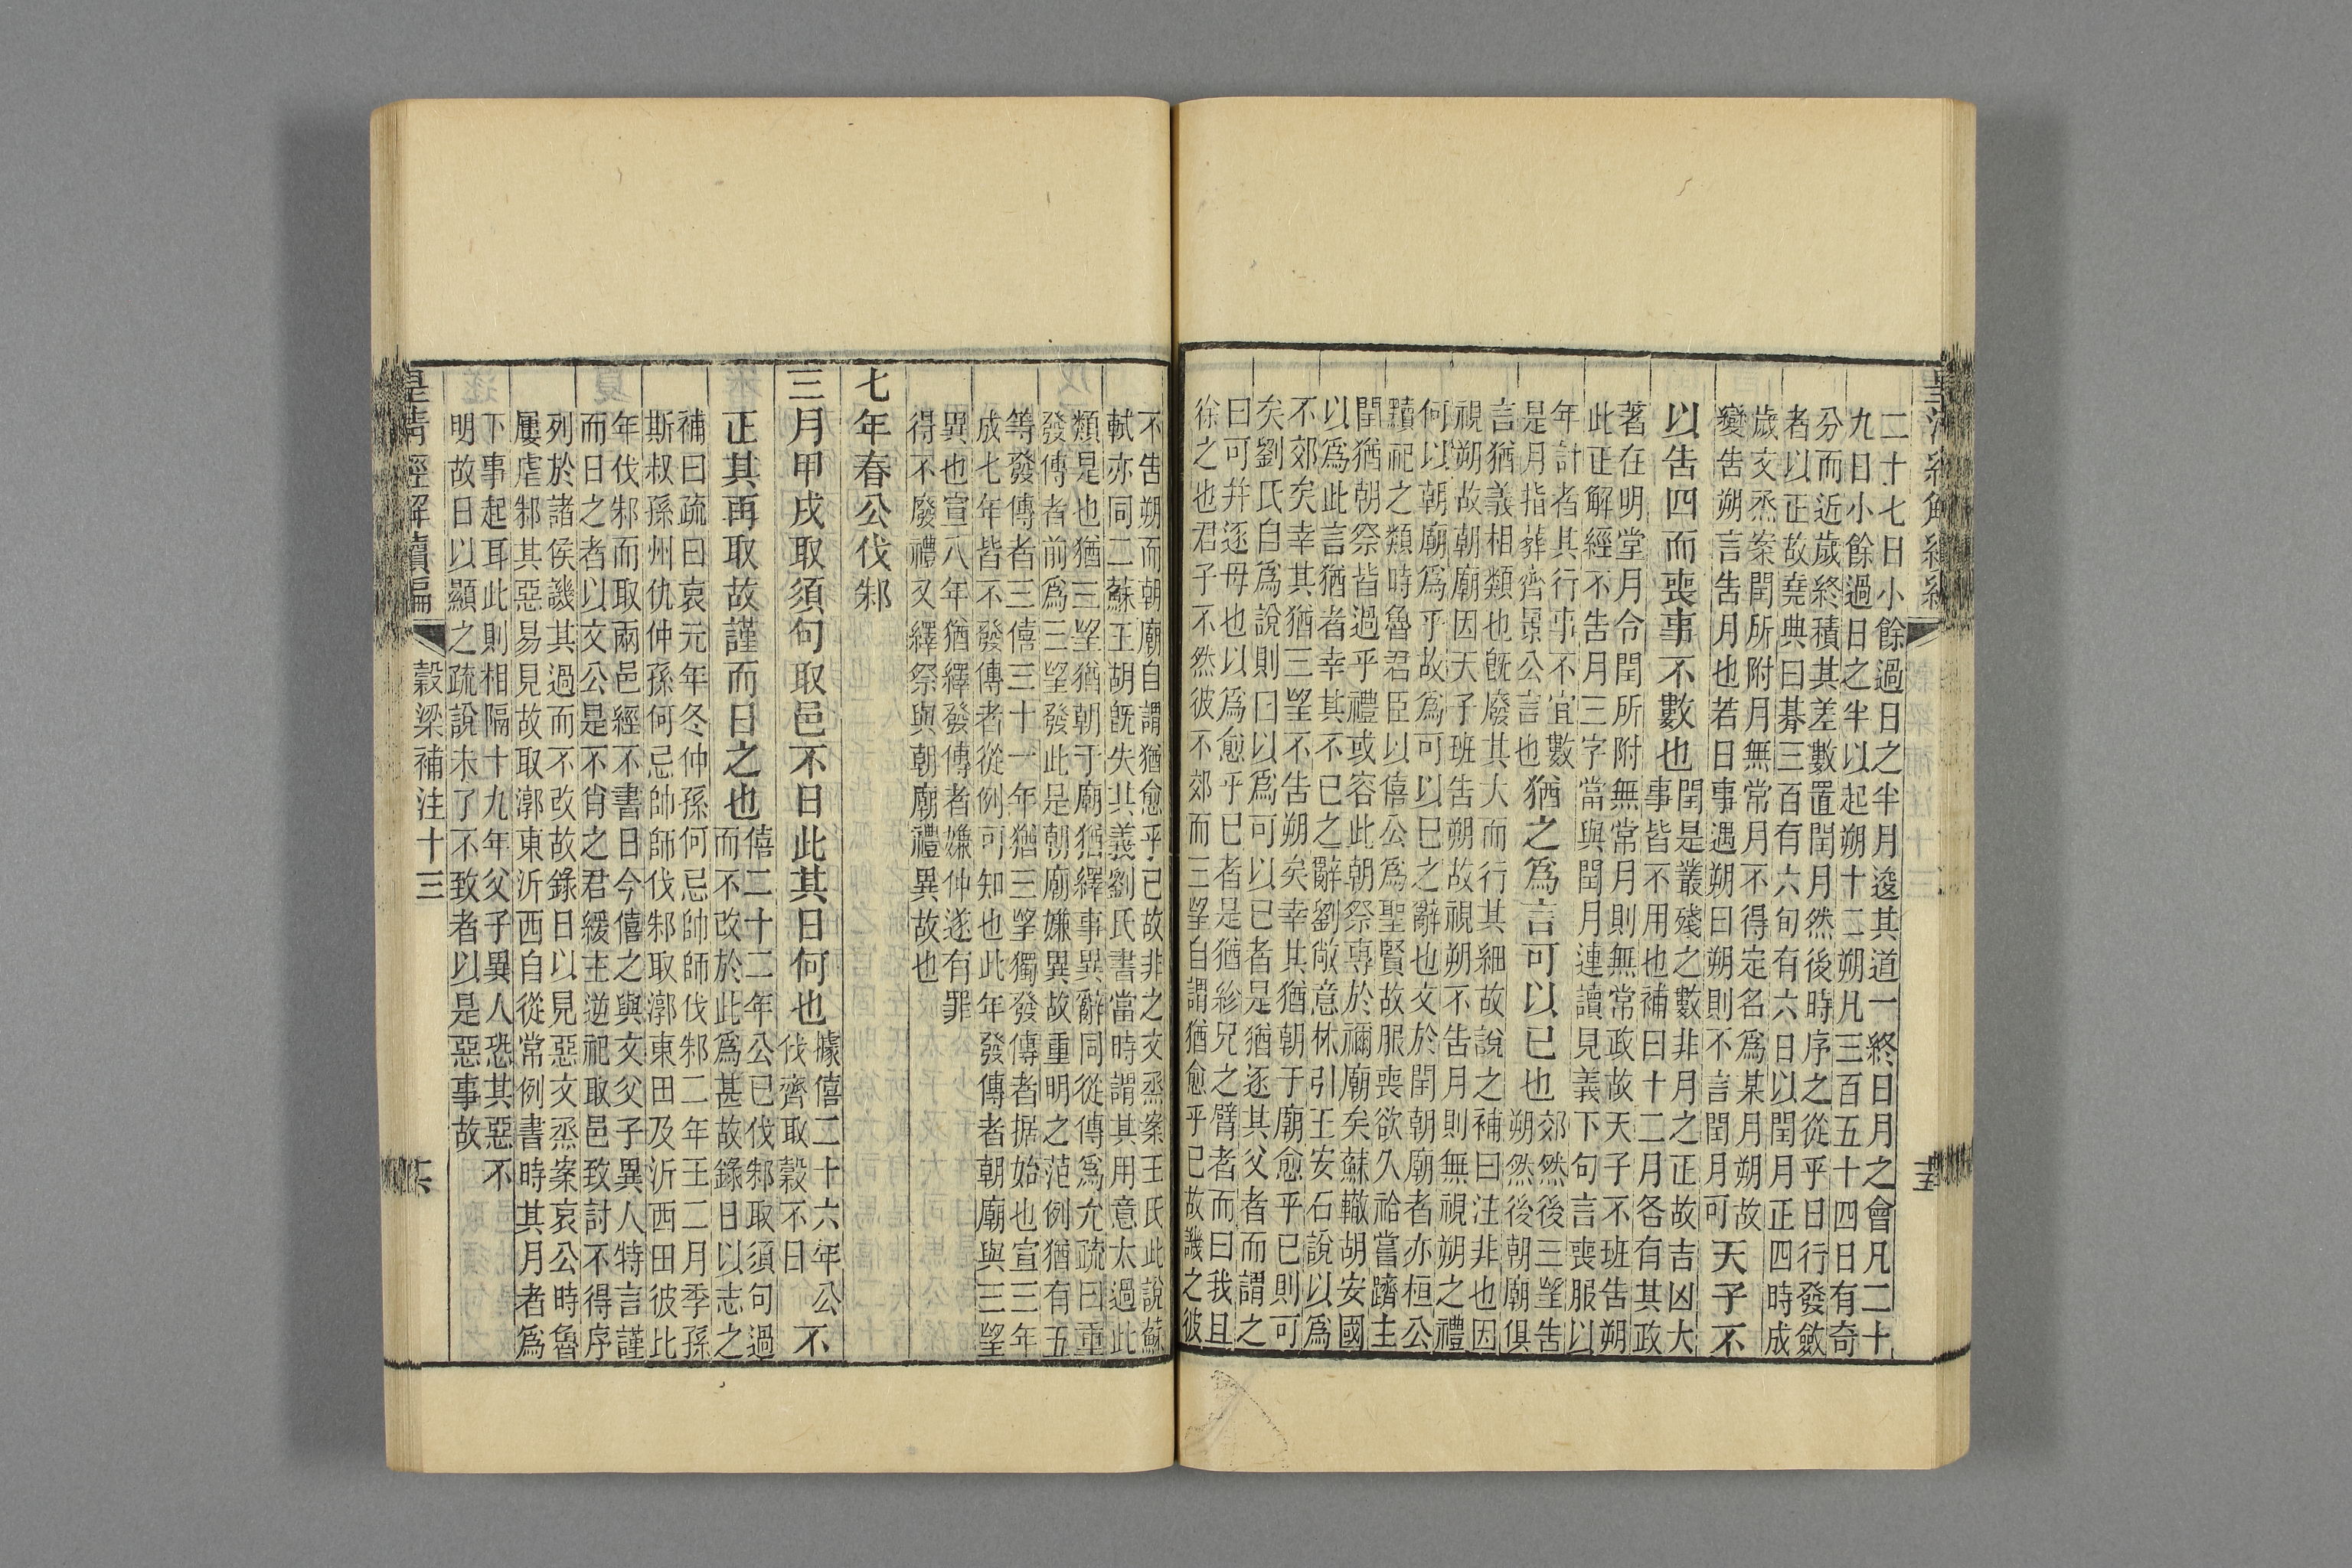 二十七日小餘過日之半月逡其道一終日月之會凡二十
九日小餘過日之半以起朔十二朔凡三百五十四日有奇
分而近歲終積其差數置閏月然後時序之從乎日行發斂
者以正故堯典曰朞三百有六旬有六日以閏月正四時成
歲文烝案閏所附月無常月不得定名爲某月朔故
變告朔言告月也若日事遇朔曰朔則不言閏月可
天子不
以告四而喪事不數也
閏是叢殘之數非月之正故吉凶大
事皆不用也補曰十二月各有其政
著在明堂月令閏所附無常月則無常政故天子不班告朔
此正解經不告月三字當與閏月連讀見義下句言喪服以
年計者其行事不宜數
是月指葬齊景公言也
猶之爲言可以已也
郊然後三望告
朔然後朝廟俱
言猶義相類也旣廢其大而行其細故說之補曰注非也因
視朔故朝廟因天子班告朔故視朔不告月則無視朔之禮
何以朝廟爲乎故爲可以已之辭也文於閏朝廟者亦桓公
黷祀之類時魯君臣以僖公爲聖賢故服喪欲久祫嘗躋主
閏猶朝祭皆過乎禮或容此朝祭專於禰廟矣蘇轍胡安國
以爲此言猶者幸其不已之辭劉敞意林引王安石說以爲
不郊矣幸其猶三望不告朔矣幸其猶朝于廟愈乎已則可
矣劉氏自爲說則曰以爲可以已者是猶逐其父者而謂之
曰可并逐母也以爲愈乎已者是猶紾兄之臂者而曰我且
徐之也君子不然彼不郊而三望自謂猶愈乎已故譏之彼
不告朔而朝廟自謂猶愈乎已故非之文烝案王氏此說蘇
軾亦同二蘇王胡旣失其義劉氏書當時謂其用意太過此
類是也猶三望猶朝于廟猶繹事異辭同從傳爲允疏曰重
發傳者前爲三望發此是朝廟嫌異故重明之范例猶有五
等發傳者三僖三十一年猶三望獨發傳者据始也宣三年
成七年皆不發傳者從例可知也此年發傳者朝廟與三望
異也宣八年猶繹發傳者嫌仲遂有罪
得不廢禮又繹祭與朝廟禮異故也
七年春公伐邾
三月甲戌取須句取邑不日此其日何也
據僖二十六年公不
伐齊取穀不日
正其再取故謹而日之也
僖二十二年公已伐邾取須句過
而不改於此爲甚故錄日以志之
補曰疏曰哀元年冬仲孫何忌帥師伐邾二年王二月季孫
斯叔孫州仇仲孫何忌帥師伐邾取漷東田及沂西田彼比
年伐邾而取兩邑經不書日今僖之與文父子異人特言謹
而日之者以文公是不肖之君緩主逆祀取邑致討不得序
列於諸侯譏其過而不改故錄日以見惡文烝案哀公時魯
屢虐邾其惡易見故取漷東沂西自從常例書時其月者爲
下事起耳此則相隔十九年父子異人恐其惡不
明故日以顯之疏說未了不致者以是惡事故
皇清經解續編
穀梁補注十三